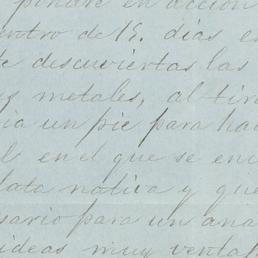 pondré en acción
entro de 15. días es
te descubiertas las
metales, al tira
ia un pie para ha
el en el que se en
lata nativa y que
sario para un ana
ideas muy venta